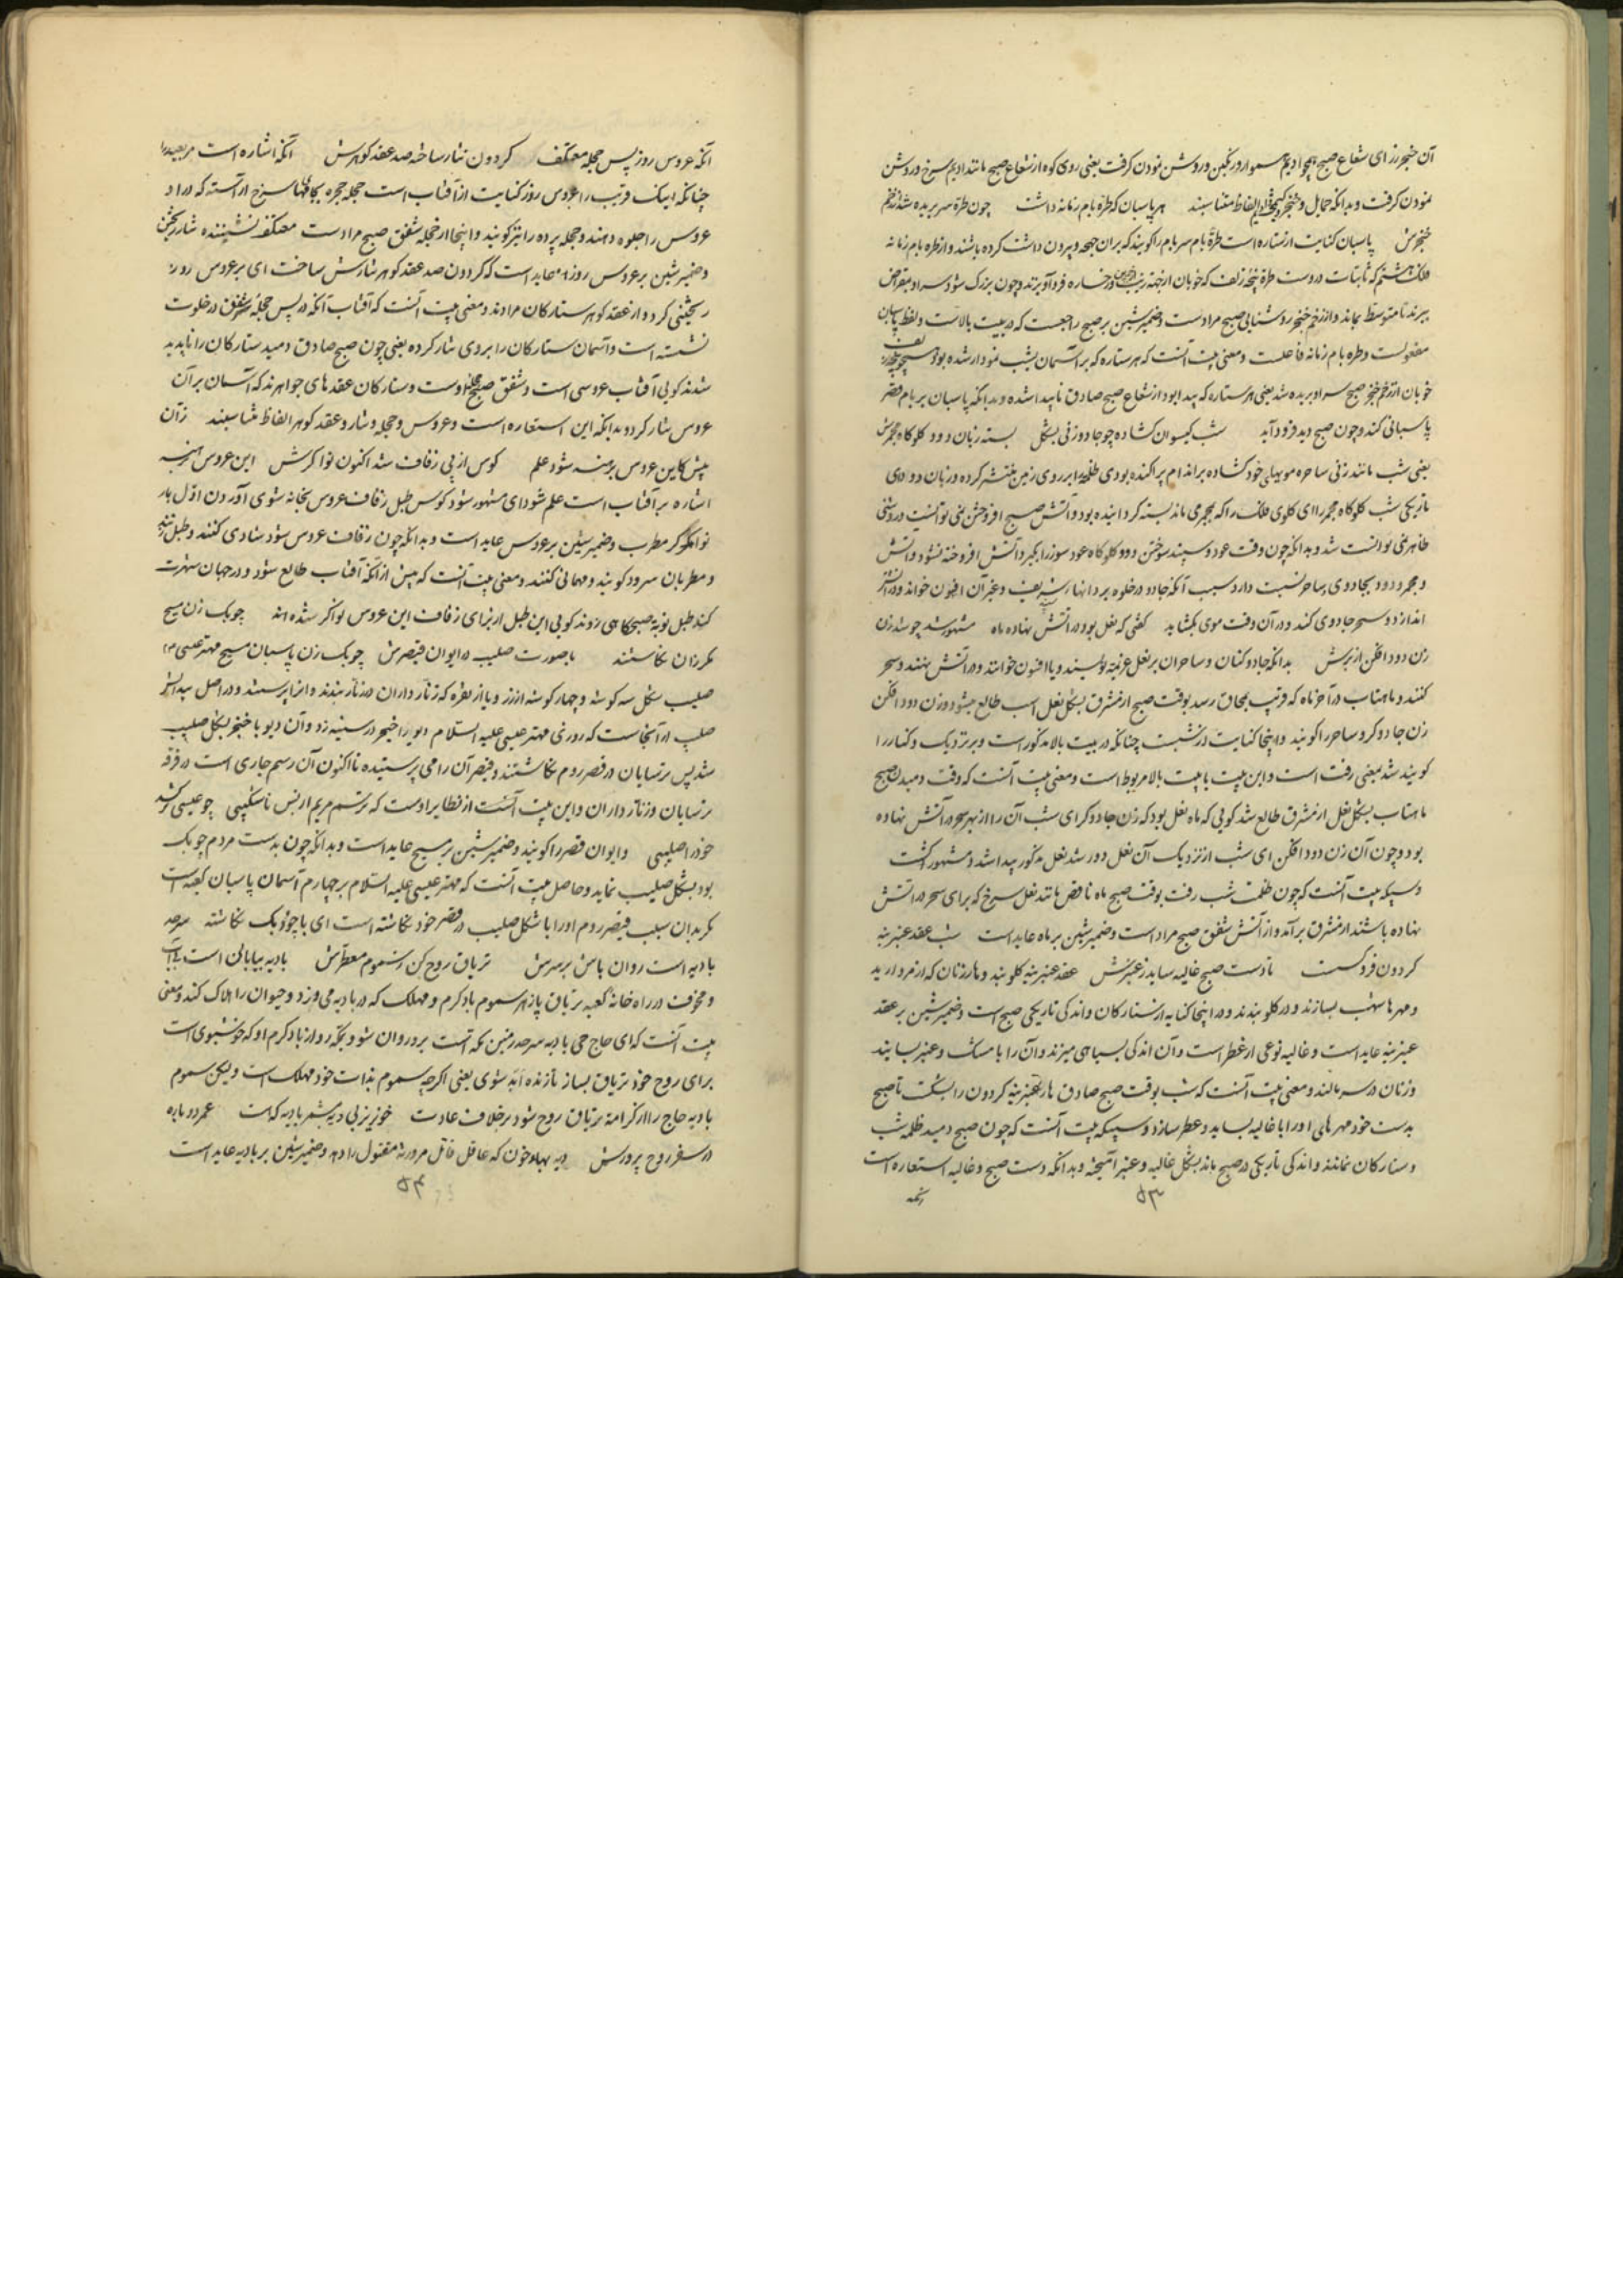 آن خنجر زر ای شعاع صبح همچو ادیم سهوار و رنگین و روشن نمودن گرفت یعنی روی کوه از شعاع صبح مانند ادیم سرخ و روشن
نمودن گرفت و بدانکه حمایل و خنجر الفاظ متناسبند هر پاسبان که طرهٔ بام زمانه داشت چون طره سر بریده شد از زخم
خنجرش پاسبان کنایت از ستاره است طرهٔ بام سر بام را گویند که بران چهجه و بیرون داشت کرده باشند و از طره بام زمانه
فلک هشتم که ثابتات دروست طره پنجه زلف که خوبان از جهة زینت در رخساره فرود آویزند و چون بزرگ شود سر او بمقراض
ببرند تا متوسط بماند و از زخم خنجر روشنایی صبح مرادست و ضمیر شین بر صبح راجعست که در بیت بالاست و لفظ پاسبان
مفعولست و طره بام زمانه فاعلست و معنی بیت آنست که هر ستاره که بر آسمان بشب نمودار شده بود
خوبان از زخم خنجر صبح سر او بریده شد یعنی هر ستاره که پیدا بود از شعاع صبح صادق ناپیدا شده و بدانکه پاسبان بر بام قصر
پاسبانی کند و چون صبح دمید فرود آید شب گیسوان گشاده چو جادو زنی بشکل بسته زبان دود گلوگاه مجمرش
یعنی شب مانند زنی ساحره مویهای خود گشاده بر اندام پراکنده بودی ظلمة را بر روی زمین منتشر کرده و زبان دود ای
تاریکی شب گلوگاه مجمر را ای گلوی فلک را که بمجمر می ماند بسته گردانیده بود و آتش صبح افروختن نمی توانست و روشنی
ظاهر نمی توانست شد و بدانکه چون وقت عود و سپند سوختن دود گلوگاه عود سوز را بگیرد آتش افروخته نشود و آتش
و مجمر و دود بجادوی و ساحر نسبت دارد سبب آنکه جادو در خلوه بر دانهاء شریف و غیر آن افسون خواند و در آتش
اندازد و سحر جادوی کند و در آن وقت موی بگشاید گفتی که نعل بود در آتش نهاده ماه مشهور شد چو شد زن
زن دود افکن از برش بدانکه جادوکنان و ساحران بر نعل عزیمة نویسند و یا افسون خوانند و در آتش نهند و سحر
کنند و ماهتاب در آخر ماه که قریب بمحاق رسد بوقت صبح از مشرق بشکل نعل اسب طالع میشود و زن دود افکن
زن جادوگر و ساحر را گویند و اینجا کنایت از شبست چنانکه در بیت بالا مذکور است و بر نزدیک و کنار را
گویند شد بمعنی رفت است و این بیت با بیت بالا مربوط است و معنی بیت آنست که وقت دمیدن صبح
ماهتاب بشکل نعل از مشرق طالع شد گویی که ماه نعل بود که زن جادوگر ای شب آن را از بهر سحر در آتش نهاده
بود و چون آن زن دود افکن ای شب از نزدیک آن نعل دور شد نعل مذکور پیدا شد و مشهور گشت
و سپکه بیت آنست که چون ظلمت شب رفت بوقت صبح ماه ناقص مانند نعل سرخ که برای سحر در آتش
نهاده باشند از مشرق برآمد و از آتش شفق صبح مراد است و ضمیر شین بر ماه عاید است شب عقد عنبرینه
گردون فرو گسست تا دست صبح غالیه ساید ز عنبرش عقد عنبرینه گلوبند و هار زنان که از مروارید
و مهرهاشهب بسازند و در گلو بندند و در اینجا کنایه از ستارگان و اندکی تاریکی صبح است و ضمیر شین بر عقد
عنبرینه عاید است و غالیه نوعی از عطر است و آن اندکی بسیاهی میزند و آن را با مسک و عنبر بسایند
و زنان در سر مالند و معنی بیت آنست که شب بوقت صبح صادق هار عنبرینه گردون را بگسست تا صبح
بدست خود مهرهای او را با غالیه بساید و عطر سازد و سپکه بیت آنست که چون صبح دمید ظلمة شب
و ستارگان نماندند و اندکی تاریکی در صبح ماند بشکل غالیه و عنبر آمیخته و بدانکه دست صبح و غالیه استعاره است
۵۳
آنکه عروس روز پس حجله معتکف گردون نثار ساخته صد عقد گوهرش آنکه اشاره است مر بعید را
چنانکه اینک قریب را عروس روز کنایت از آفتاب است حجله حجره بجامهای سرخ آراسته که در او
عروس را جلوه دهند و حجله پرده را نیز گویند و اینجا از حجله شفق صبح مرادست معتکف نشیننده نثار ریختن
و ضمیر شین بر عروس روز عاید است که گردون صد عقد گوهر نثارش ساخت ای بر عروس روز
ریختنی کرد و از عقد گوهر ستارگان مرادند و معنی بیت آنست که آفتاب آنکه در پس حجله شفق در خلوت
نشسته است و آسمان ستارگان را بروی نثار کرده یعنی چون صبح صادق دمید ستارگان را ناپدید
شدند گویی آفتاب عروسی است و شفق صبح حجله اوست و ستارگان عقدهای جواهرند که آسمان بر آن
عروس نثار کرد و بدانکه این استعاره است و عروس و حجله و نثار و عقد گوهر الفاظ متناسبند زآن
پیش کاین عروس برهنه شود علم کوس از پی زفاف شد اکنون نواگرش این عروس برهنه
اشاره بر آفتاب است علم شود ای مشهور شود کوس طبل زفاف عروس بخانه شوی آوردن اول بار
نواگر مطرب و ضمیر شین بر عروس عاید است و بدانکه چون زفاف عروس شود شادی کنند و طبل زنند
و مطربان سرود گویند و مهمانی کنند و معنی بیت آنست که پیش از آنکه آفتاب طالع شود و در جهان شهرت
کند طبل نوبة صبحگاهی زدند گویی این طبل از برای زفاف این عروس نواگر شده اند چوبک زن مسیح
مگر زان نگاشتند با صورت صلیب در ایوان قیصرش چوبک زن پاسبان مسیح مهتر عیسی
صلیب شکل سه گوشه و چهار گوشه از زر و یا از نقره که زنار داران در زنار بندند و آنرا پرستند و در اصل پیدایش
صلیب از آنجاست که روزی مهتر عیسی علیه السلام دیو را خنجر در سینه زد و آن دیو با خنجر بشکل صلیب
شد پس ترسایان در قصر روم نگاشتند و قیصر آن را می پرستیده تا اکنون آن رسم جاری است در فرقه
ترسایان و زنار داران و این بیت آنست از نظایر اوست که ترسم مریم از بس ناشکیبی چو عیسی برکشد
خود را صلیبی و ایوان قصر را گویند و ضمیر شین بر مسیح عاید است و بدانکه چون بدست مردم چوبک
بود بشکل صلیب نماید و حاصل بیت آنست که مهتر عیسی علیه السلام بر چهارم آسمان پاسبان کعبه است
مگر بدان سبب قیصر روم او را با شکل صلیب در قصر خود نگاشته است ای با چوبک نگاشته سرحد
بادیه است روان باش بر سرش تریاق روح کن ز سموم معطرش بادیه بیابانی است
و مخوف در راه خانهٔ کعبه تریاق پازهر سموم باد گرم و مهلک که در بادیه می وزد و حیوان را هلاک کند و معنی
بیت آنست که ای حاج حی بادیه سرحد زمین مکه است برو روان شو و بمکه رو از باد گرم او که خوشبوی است
برای روح خود تریاق بساز تا زنده ابد شوی یعنی اگرچه سموم بذات خود مهلک است ولیکن سموم
بادیه حاج را از کرامة تریاق روح شود بر خلاف عادت خونریز بی دیه مشمر بادیه که است عمر دوباره
در سفر روح پرورش دیه بهاء خون که عاقل قاتل مر ورثهٔ مقتول را دهد و ضمیر شین بر بادیه عاید است
۵۴